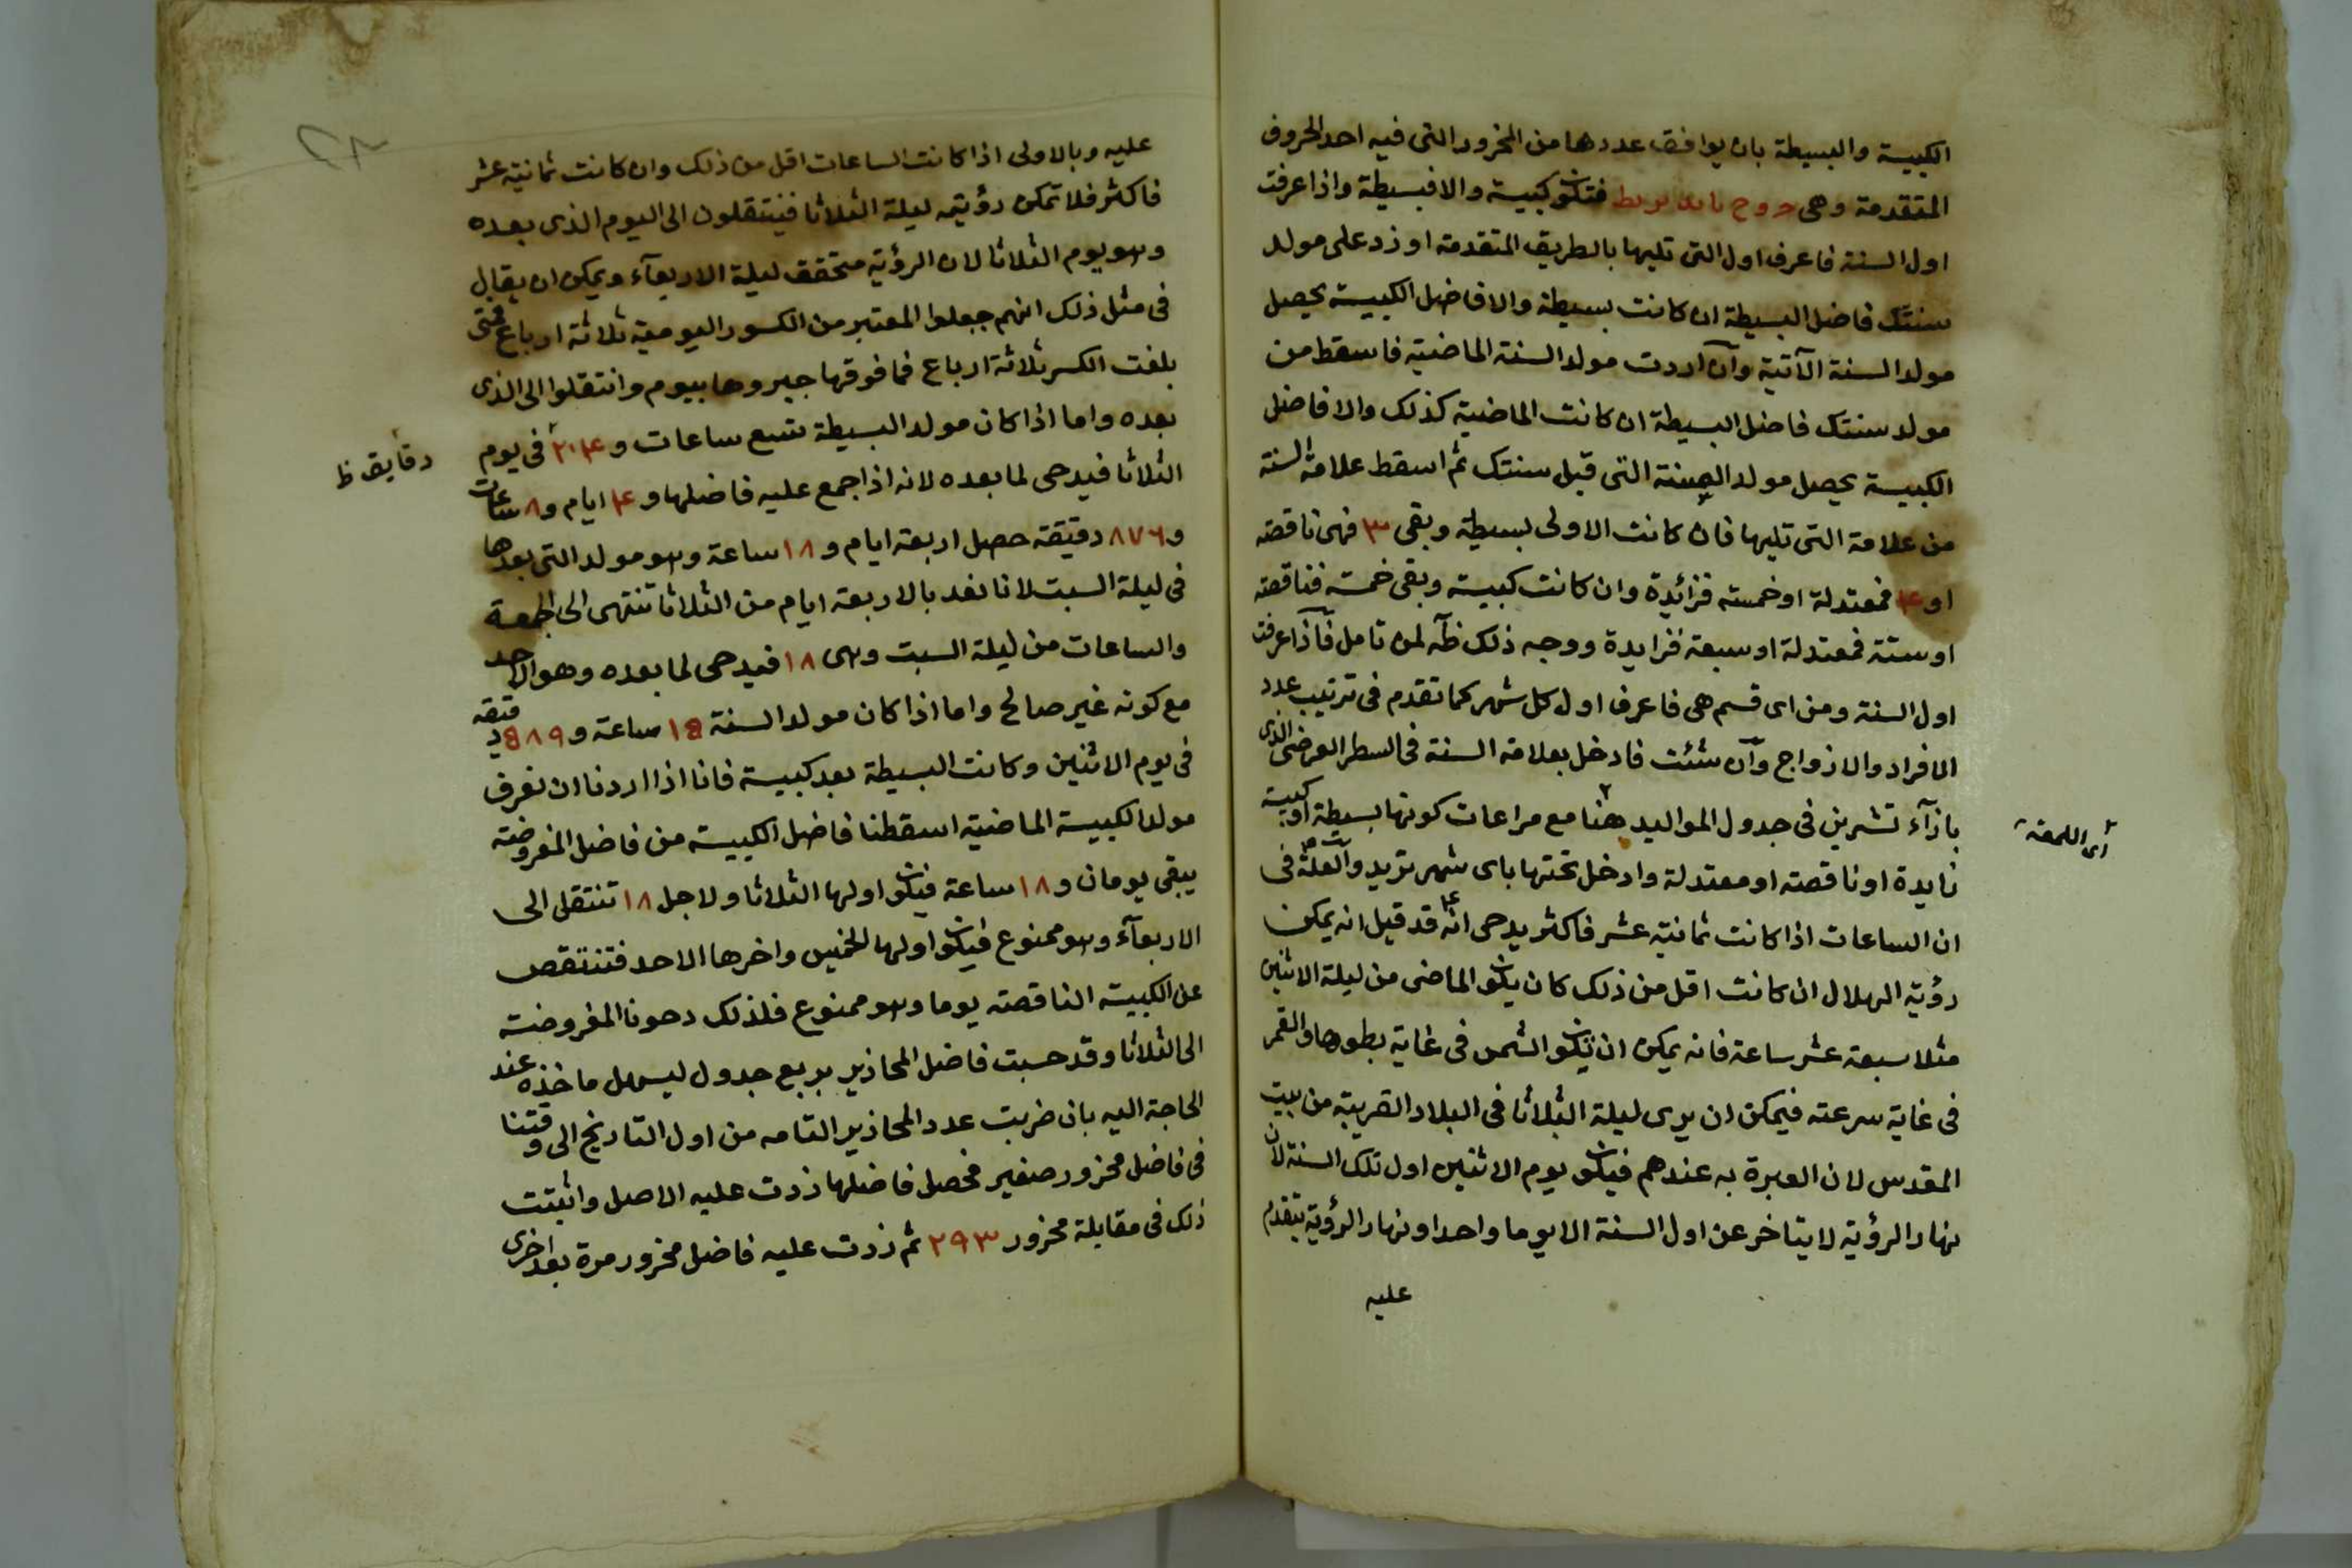 الكبيسة والبسيطة بان يوافق عددها من المحزور التى فيه احد الحروف
المتقدمة وهى فتكون كبيسة والا فبسيطة واذا عرفت
اول السنة فاعرف اول التى تليها بالطريق المتقدمة او زد على مولد
سنتك فاضل البسيطة ان كانت بسيطة والا فاضل الكبيسة يحصل
مولد السنة الآتية وان اردت مولد السنة الماضية فاسقط من
مولد سنتك فاضل البسيطة ان كانت الماضية كذلك والا فاضل
الكبيسة يحصل مولد السنة التى قبل سنتك ثم اسقط علامة السنة
من علامة التى تليها فان كانت الاولى بسيطة وبقى ٣ فهى ناقصة
او ۴ فمعتدلة او خمسة فزائدة وان كانت كبيسة وبقى خمسة فناقصة
او ستة فمعتدلة او سبعة فزايدة ووجه ذلك ظآ لمن تامل فآذا عرفت
اول السنة ومن اى قسم هى فاعرف اول كل شهر كما تقدم فى ترتيب عدد
الافراد والازواج وآن شئت فادخل بعلامة السنة فى السطر العرضى الذى
بازآء تشرين فى جدول المواليد هنا مع مراعات كونها بسيطة او كبيسة
زايدة او ناقصة او معتدلة وادخل تحتها باى شهر تريد وآلعلة فى
اى اللمعة
ان الساعات اذا كانت ثمانية عشر فاكثر يدحى انه قد قيل انه يمكن
رؤية الهلال ان كانت اقل من ذلك كان يكون الماضى من ليلة الاثنين
مثلا سبعة عشر ساعة فانه يمكن ان تكون الشمس فى غاية بطوها والقمر
فى غاية سرعته فيمكن ان يرى ليلة الثلاثا فى البلاد القريبة من بيت
المقدس لان العبرة به عندهم فيكون يوم الاثنين اول تلك السنة لان
نهار الرؤية لا يتاخر عن اول السنة الا يوما واحدا ونهار الرؤية يتقدم
عليه
عليه وبالاولى اذا كانت الساعات اقل من ذلك وان كانت ثمانية عشر
فاكثر فلا تمكن رؤيته ليلة الثلاثا فينتقلون الى اليوم الذى بعده
وهو يوم الثلاثا لان الرؤية متحقق ليلة الاربعآء ويمكن ان يقال
فى مثل ذلك انهم جعلوا المعتبر من الكسور اليومية ثلاثة ارباع فمتى
بلغت الكسر ثلاثة ارباع فما فوقها جبروها بيوم وانتقلوا الى الذى
بعده واما اذا كان مولد البسيطة تسع ساعات و ٢٠۴ فى يوم
دقايق ظ
الثلاثا فيدحى لما بعده لانه اذا جمع عليه فاضلها و ۴ ايام و ٨ ساعات
و ٨٧٦ دقيقة حصل اربعة ايام و ١٨ ساعة وهو مولد التى بعدها
فى ليلة السبت لانا نعد بالاربعة ايام من الثلاثا تنتهى الى الجمعة
والساعات من ليلة السبت وهى ١٨ فيدحى لما بعده وهو الاحد
مع كونه غير صالح واما اذا كان مولد السنة ١٥ ساعة و ٥٨٩ دقيقة
فى يوم الاثنين وكانت البسيطة بعد كبيسة فانا اذا اردنا ان نعرف
مولد الكبيسة الماضية اسقطنا فاضل الكبيسة من فاضل المفروضة
يبقى يومان و ١٨ ساعة فيكون اولها الثلاثا ولاجل ١٨ تنتقل الى
الاربعآء وهو ممنوع فيكون اولها الخميس واخرها الاحد فتنتقص
عن الكبيسة الناقصة يوما وهو ممنوع فلذلك دحونا المفروضة
الى الثلاثا وقد حسبت فاضل المحازير بربع جدول ليسهل ماخذه عند
الحاجة اليه بان ضربت عدد المحازير التامه من اول التاريخ الى وقتنا
فى فاضل محزور صغير فحصل فاضلها زدت عليه الاصل واثبتت
ذلك فى مقابلة محزور ٢٩٣ ثم زدت عليه فاضل محزور مرة بعد اخرى